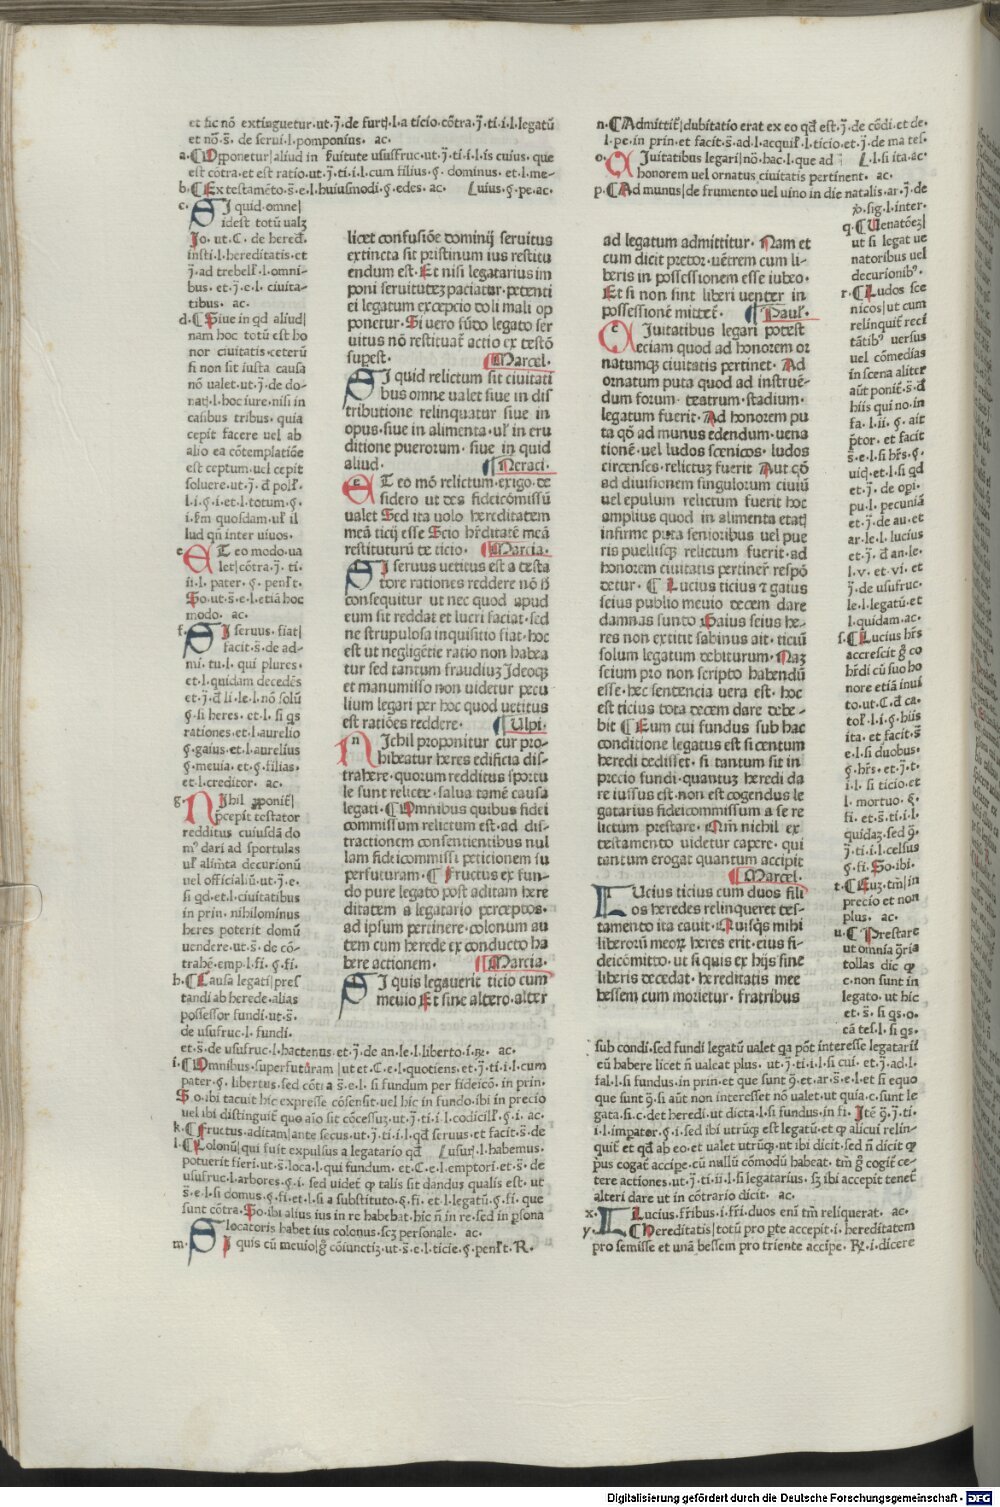 et sic nõ extinguetur. ut. j̃. de furt̃. l. a ticio. cõtra. j̃. ti. i. l. legatũ
et nõ. s̃. de serui. l. pomponius. ac.
a. ¶ Opponetur | aliud in seruitute ususfruc. ut. j̃. ti. i. l. is cuius. que
est cõtra. et est ratio. ut. j̃. ti. i. l. cum filius. §. dominus. et l. me-
b. ¶ Ex testamẽto. s̃. e. l. huiusmodi. §. edes. ac. [uius. §. pe. ac.
c. SI quid. omne |
idest totũ ualꝫ
Jo. ut. C. de hered.
insti. l. hereditatis. et
j̃. ad trebell. l. omni-
bus. et. j̃. e. l. ciuita-
tibus. ac.
d. ¶ Siue in qđ aliud |
nam hoc totũ est ho
nor ciuitatis. ceterũ
si non sit iusta causa
nõ ualet. ut. j̃. de do-
nat̃. l. hoc iure. nisi in
casibus tribus. quia
cepit facere uel ab
alio ea cõtemplatiõe
est ceptum. uel cepit
soluere. ut. j̃. đ poll.
l. i. §. i. et. l. totum. §.
i. s̃m quosdam. ul̃ il
lud qñ inter uiuos.
e. ET eo modo. ua
let | cõtra. j̃. ti.
ii. l. pater. §. penl̃t.
So. ut. s̃. e. l. etiã hoc
modo. ac.
f. SI seruus. fiat |
facit. s̃. de ad-
mi. tu. l. qui plures.
et. l. quidam decedẽs
et. j̃. đ li. le. l. nõ solũ
§. si heres. et. l. si qs
rationes. et. l. aurelio
§. gaius. et. l. aurelius
§. meuia. et. §. filias.
et. l. creditor. ac.
g. NIhil ꝓponit̃ |
p̃cepit testator
redditus cuiusdã do
m᷒ dari ad sportulas
ul̃ alim̃ta decurionũ
uel officialiũ. ut. j̃. e.
si qđ. et. l. ciuitatibus
in prin. nihilominus
heres poterit domũ
uendere. ut. s̃. de cõ-
trahẽ. emp. l. fi. §. fi.
h. ¶ Causa legati | pres
tandi ab herede. alias
possessor fundi. ut. s̃.
de usufruc. l. fundi.
et. s̃. de usufruc. l. hactenus. et. j̃. de an. le. l. liberto. i. ℞. ac.
i. ¶ Omnibus. superfuturam | ut et. C. e. l. quotiens. et. j̃. ti. i. l. cum
pater. §. libertus. sed cõtra s̃. e. l. si fundum per fideicõ. in prin.
So. ibi tacuit hic expresse cõsensit. uel hic in fundo. ibi in precio
uel ibi distinguit̃ quo aĩo sit cõcessuꝫ. ut. j̃. ti. i. l. codicill̃. §. i. ac.
k. ¶ Fructus. aditam | ante secus. ut. j̃. ti. i. l. qđ seruus. et facit. s̃. de
l. ¶ Colonũ | qui fuit expulsus a legatario qđ [usur̃. l. habemus.
potuerit fieri. ut. s̃. loca. l. qui fundum. et. C. e. l. emptori. et. s̃. de
usufruc. l. arbores. §. i. sed uidet̃ ꝙ talis sit dandus qualis est. ut
s̃. e. l. si domus. §. fi. et. l. si a substituto. §. fi. et. l. legatũ. §. fi. que
sunt cõtra. So. ibi alius ius in re habebat. hic ñ in re. sed in p̃sona
locatoris habet ius colonus. scꝫ personale. ac.
m. SI quis cũ meuio | g̃ cõiunctiꝫ. ut. s̃. e. l. ticie. §. penl̃t. R.
licet confusiõe dominij seruitus
extincta sit pristinum ius restitu
endum est. Et nisi legatarius im
poni seruituteꝫ paciatur. petenti
ei legatum excepcio doli mali op
ponetur. Si uero fũdo legato ser
uitus nõ restituat̃ actio ex testõ
supest. ¶ Marcel.
SI quid relictum sit ciuitati
bus omne ualet siue in dis
tributione relinquatur siue in
opus. siue in alimenta. ul̃ in eru
ditione puerorum. siue in quid
aliud. ¶ Neraci.
ET eo mõ relictum. exigo. de
sidero ut des fideicõmissũ
ualet Sed ita uolo hereditatem
meã ticij esse Scio hr̃ditatẽ meã
restituturũ te ticio. ¶ Marcia.
SI seruus uetitus est a testa
tore rationes reddere nõ h̃
consequitur ut nec quod apud
eum sit reddat et lucri faciat. sed
ne strupulosa inquisitio fiat. hoc
est ut negligẽtie ratio non habea
tur sed tantum fraudiuꝫ Ideoqꝫ
et manumisso non uidetur pecu
lium legari per hoc quod uetitus
est ratiões reddere. ¶ Ulpi.
NIchil proponitur cur pro-
hibeatur heres edificia dis-
trahere. quorum redditus sportu
le sunt relicte. salua tamẽ causa
legati. ¶ Omnibus quibus fidei
commissum relictum est. ad dis-
tractionem consentientibus nul
lam fideicommissi peticionem su
perfuturam. ¶ Fructus ex fun-
do pure legato post aditam here
ditatem a legatario perceptos.
ad ipsum pertinere. colonum au
tem cum herede ex conducto ha
bere actionem. ¶ Marcia.
SI quis legauerit ticio cum
meuio Et sine altero. alter
n. ¶ Admittit̃ | dubitatio erat ex eo qđ est. j̃. de cõdi. et de-
l. pe. in prin. et facit. s̃. ad. l. acquil̃. l. ticio. et. j̃. de ma tes.
o. CIuitatibus legari | nõ. hac. l. que ad [l. l. si ita. ac.
honorem uel ornatus ciuitatis pertinent. ac.
p. ¶ Ad munus | de frumento uel uino in die natalis. ar. j̃. de
ad legatum admittitur. Nam et
cum dicit pretor. uẽtrem cum li-
beris in possessionem esse iubeo.
Et si non sint liberi uenter in
possessionẽ mittet̃. ¶ Paul̃.
CIuitatibus legari potest
eciam quod ad honorem or
natumqꝫ ciuitatis pertinet. Ad
ornatum puta quod ad instruẽ-
dum forum. teatrum. stadium.
legatum fuerit. Ad honorem pu
ta qõ ad munus edendum. uena
tionẽ. uel ludos scenicos. ludos
circenses. relictuꝫ fuerit Aut qõ
ad diuisionem singulorum ciuiũ
uel epulum relictum fuerit hoc
amplius quod in alimenta etat̃
infirme puta senioribus uel pue
ris puellisqꝫ relictum fuerit. ad
honorem ciuitatis pertiner̃ respõ
detur. ¶ Lucius ticius ⁊ gaius
seius publio meuio decem dare
damnas sunto Gaius seius he-
res non extitit sabinus ait. ticiũ
solum legatum debiturum. Naꝫ
seium pro non scripto habendũ
esse. hec sentencia uera est. hoc
est ticius tota decem dare debe-
bit ¶ Eum cui fundus sub hac
conditione legatus est si centum
heredi dedisset. si tantum sit in
precio fundi. quantuꝫ heredi da
re iussus est. non est cogendus le
gatarius fideicommissum a se re
lictum prestare. Nm̃ nichil ex
testamento uidetur capere. qui
tantum erogat quantum accipit
¶ Marcel.
LUcius ticius cum duos fili
os heredes relinqueret tes-
tamento ita cauit. Quisqꝫ mihi
liberorũ meoꝝ heres erit. eius fi-
deicõmitto. ut si quis ex hijs sine
liberis decedat. hereditatis mee
bessem cum morietur. fratribus
ꝓ. sig. l. inter.
q. ¶ Uenatõeꝫ |
ut si legat ue
natoribus uel
decurionib᷒.
r. ¶ Ludos sce
nicos | ut cum
relinquit̃ reci
tãtib᷒ uersus
uel comedias
in scena aliter
aũt ponit̃. s̃. đ
hiis qui no. in
fa. l. ii. §. ait
p̃tor. et facit
s̃. e. l. si hr̃s. §.
uiđ. et. l. si qđ
et. j̃. de opi.
pu. l. pecuniã
et. j̃. de au. et
ar. le. l. lucius
et. j̃. đ an. le.
l. v. et vi. et
j̃. de usufruc.
le. l. legatũ. et
l. quidam. ac.
s. ¶ Lucius hr̃s
accrescit g̃ co
hr̃di cũ suo ho
nore etiã inui
to. ut. C. đ ca.
tol̃. l. i. §. hiis
ita. et facit. s̃
e. l. si duobus.
§. hr̃s. et. j̃. t.
i. l. si ticio. et
l. mortuo. §.
fi. et. s̃. ti. i. l.
quidaꝫ. sed g̃.
j̃. ti. i. l. celsus
§. fi. So. ibi.
t. ¶ Euꝫ. tm̃ | in
precio et non
plus. ac.
u. ¶ Prestare
ut omnia q̃ria
tollas dic ꝙ
c. non sunt in
legato. ut hic
et. s̃. si qs. o.
cã tes. l. si qs.
sub condi. sed fundi legatũ ualet qa põt interesse legatarii
eũ habere licet ñ ualeat plus. ut. j̃. ti. i. l. si cui. et. j̃. ad. l.
fal. l. si fundus. in prin. et que sunt g̃. et ar. s̃. e. l. et si equo
que sunt g̃. si aũt non interesset nõ ualet. ut quia. c. sunt le
gata. si. c. det heredi. ut dicta. l. si fundus. in fi. Itẽ g̃. j̃. ti.
i. l. imp̃ator. §. i. sed ibi utrũqꝫ est legatũ. et ꝙ alicui relin-
quit̃ et qđ ab eo. et ualet utrũqꝫ. ut ibi dicit. sed ñ dicit ꝙ
p̃us cogat̃ accipe. cũ nullũ cõmodũ habeat. tm̃ g̃ cogit̃ ce-
tere actiones. ut. j̃. ti. ii. l. si legatarius. sꝫ ibi accepit tenet̃
alteri dare ut in cõtrario dicit. ac.
x. LUcius. fr̃ibus. i. fr̃i. duos eni᷒ tm̃ reliquerat. ac.
y. ¶ Hereditatis | totũ pro pte accepit. i. hereditatem
pro semisse et unã bessem pro triente accipe. ℞. i. dicere
Digitalisierung gefördert durch die Deutsche Forschungsgemeinschaft - DFG